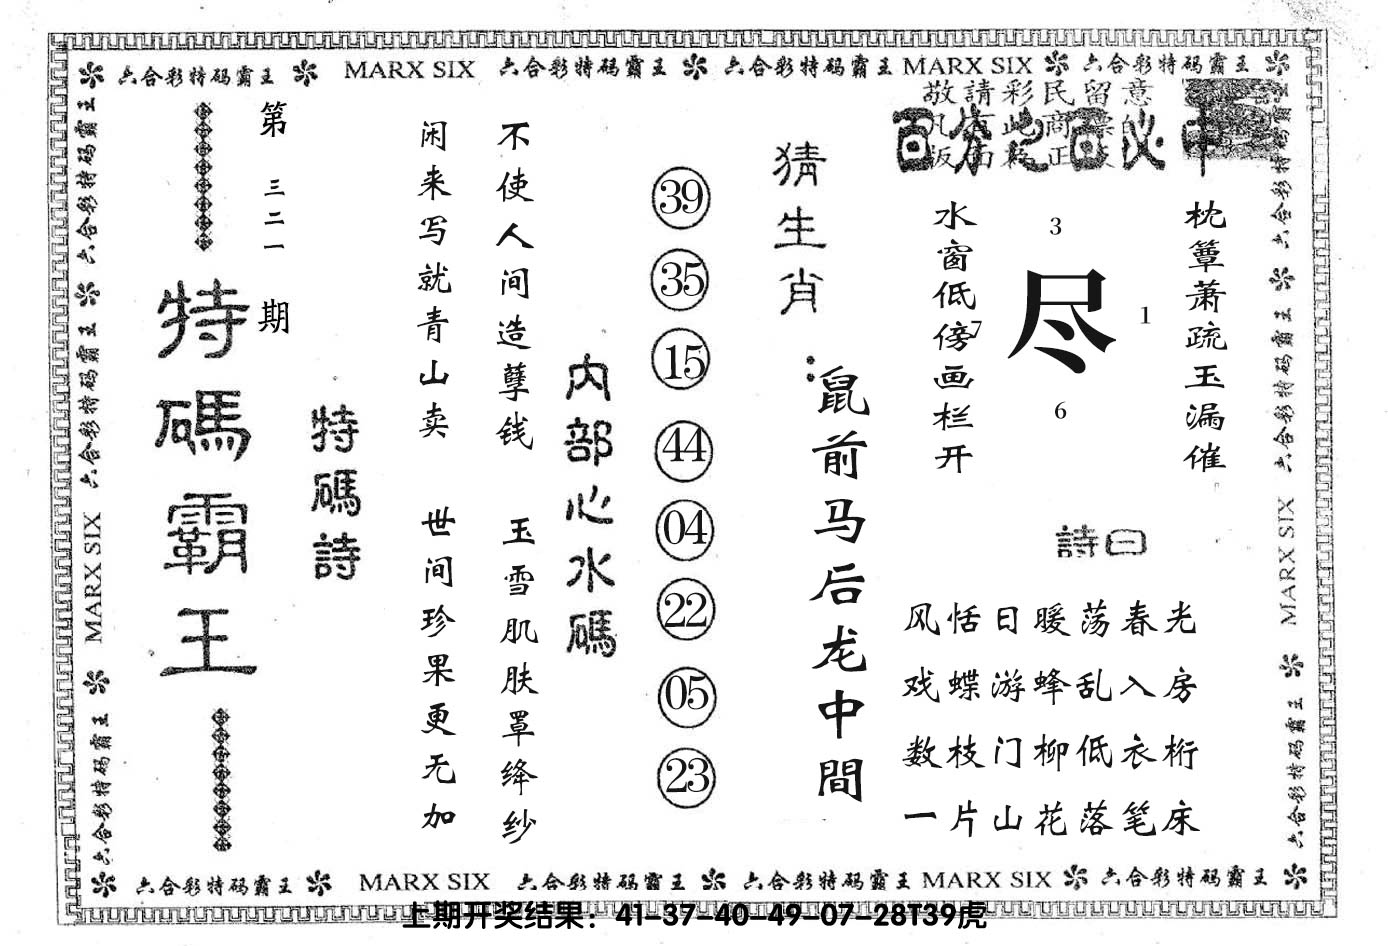 六合彩特码霸王 MARX SIX 六合彩特码霸王 六合彩特码霸王 MARX SIX 六合彩特码霸王
敬請彩民留意
百分之百必中
枕簟萧疏玉漏催
水窗低傍画栏开
3
尽
7
1
6
詩曰
风恬日暖荡春光
戏蝶游蜂乱入房
数枝门柳低衣桁
一片山花落笔床
猜生肖:
鼠前马后龙中間
39
35
15
44
04
22
05
23
内部心水碼
不使人间造孽钱 玉雪肌肤罩绛纱
闲来写就青山卖 世间珍果更无加
特碼詩
第三二一期
特碼霸王
六合彩特码霸王 六合彩特码霸王 MARX SIX 六合彩特码霸王
六合彩特码霸王 六合彩特码霸王 MARX SIX 六合彩特码霸王
六合彩特码霸王 MARX SIX 六合彩特码霸王 六合彩特码霸王 MARX SIX 六合彩特码霸王
上期开奖结果：41-37-40-49-07-28T39虎